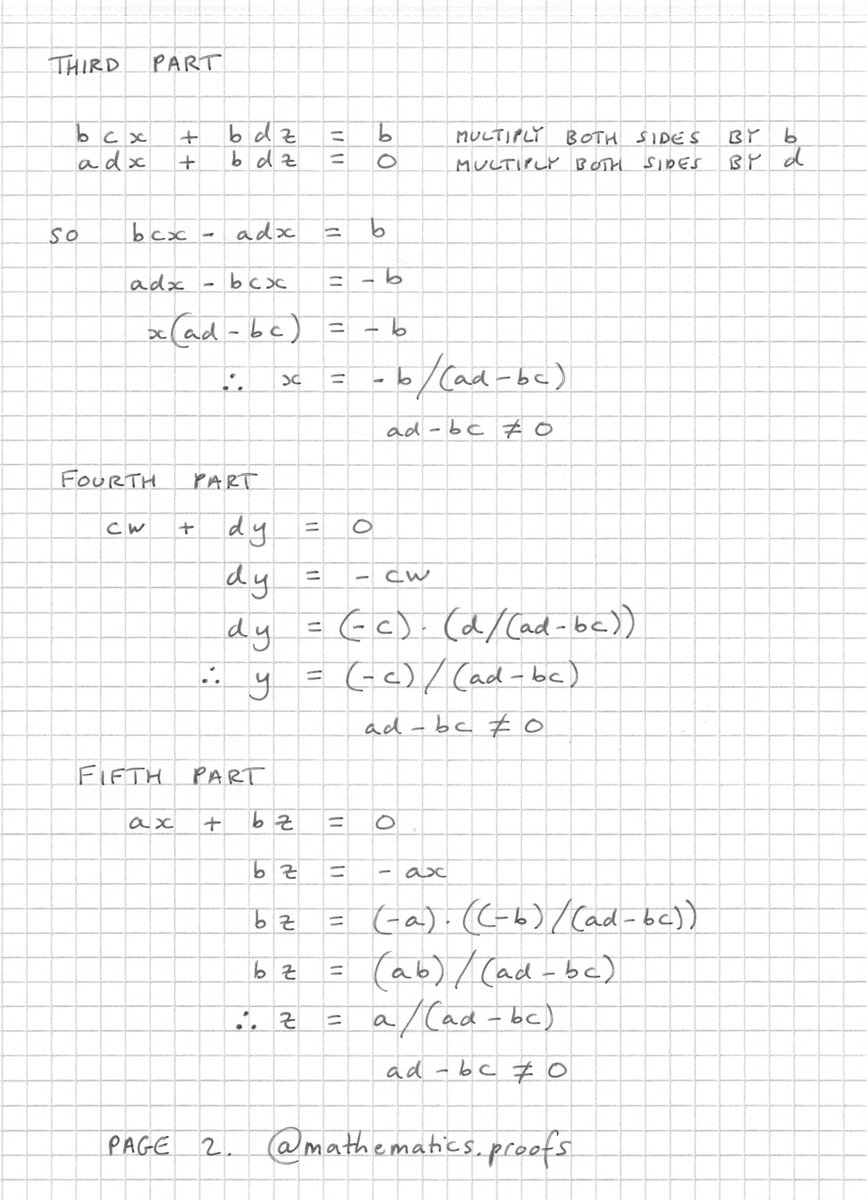 THIRD PART
bcx + bdz = b MULTIPLY BOTH SIDES BY b
adx + bdz = 0 MULTIPLY BOTH SIDES BY d
SO bcx - adx = b
adx - bcx = -b
x(ad - bc) = -b
∴ x = -b/(ad-bc)
ad-bc ≠ 0
FOURTH PART
cw + dy = 0
dy = -cw
dy = (-c).(d/(ad-bc))
∴ y = (-c)/(ad-bc)
ad-bc ≠ 0
FIFTH PART
ax + bz = 0
bz = -ax
bz = (-a).((-b)/(ad-bc))
bz = (ab)/(ad-bc)
∴ z = a/(ad-bc)
ad-bc ≠ 0
PAGE 2. @mathematics.proofs